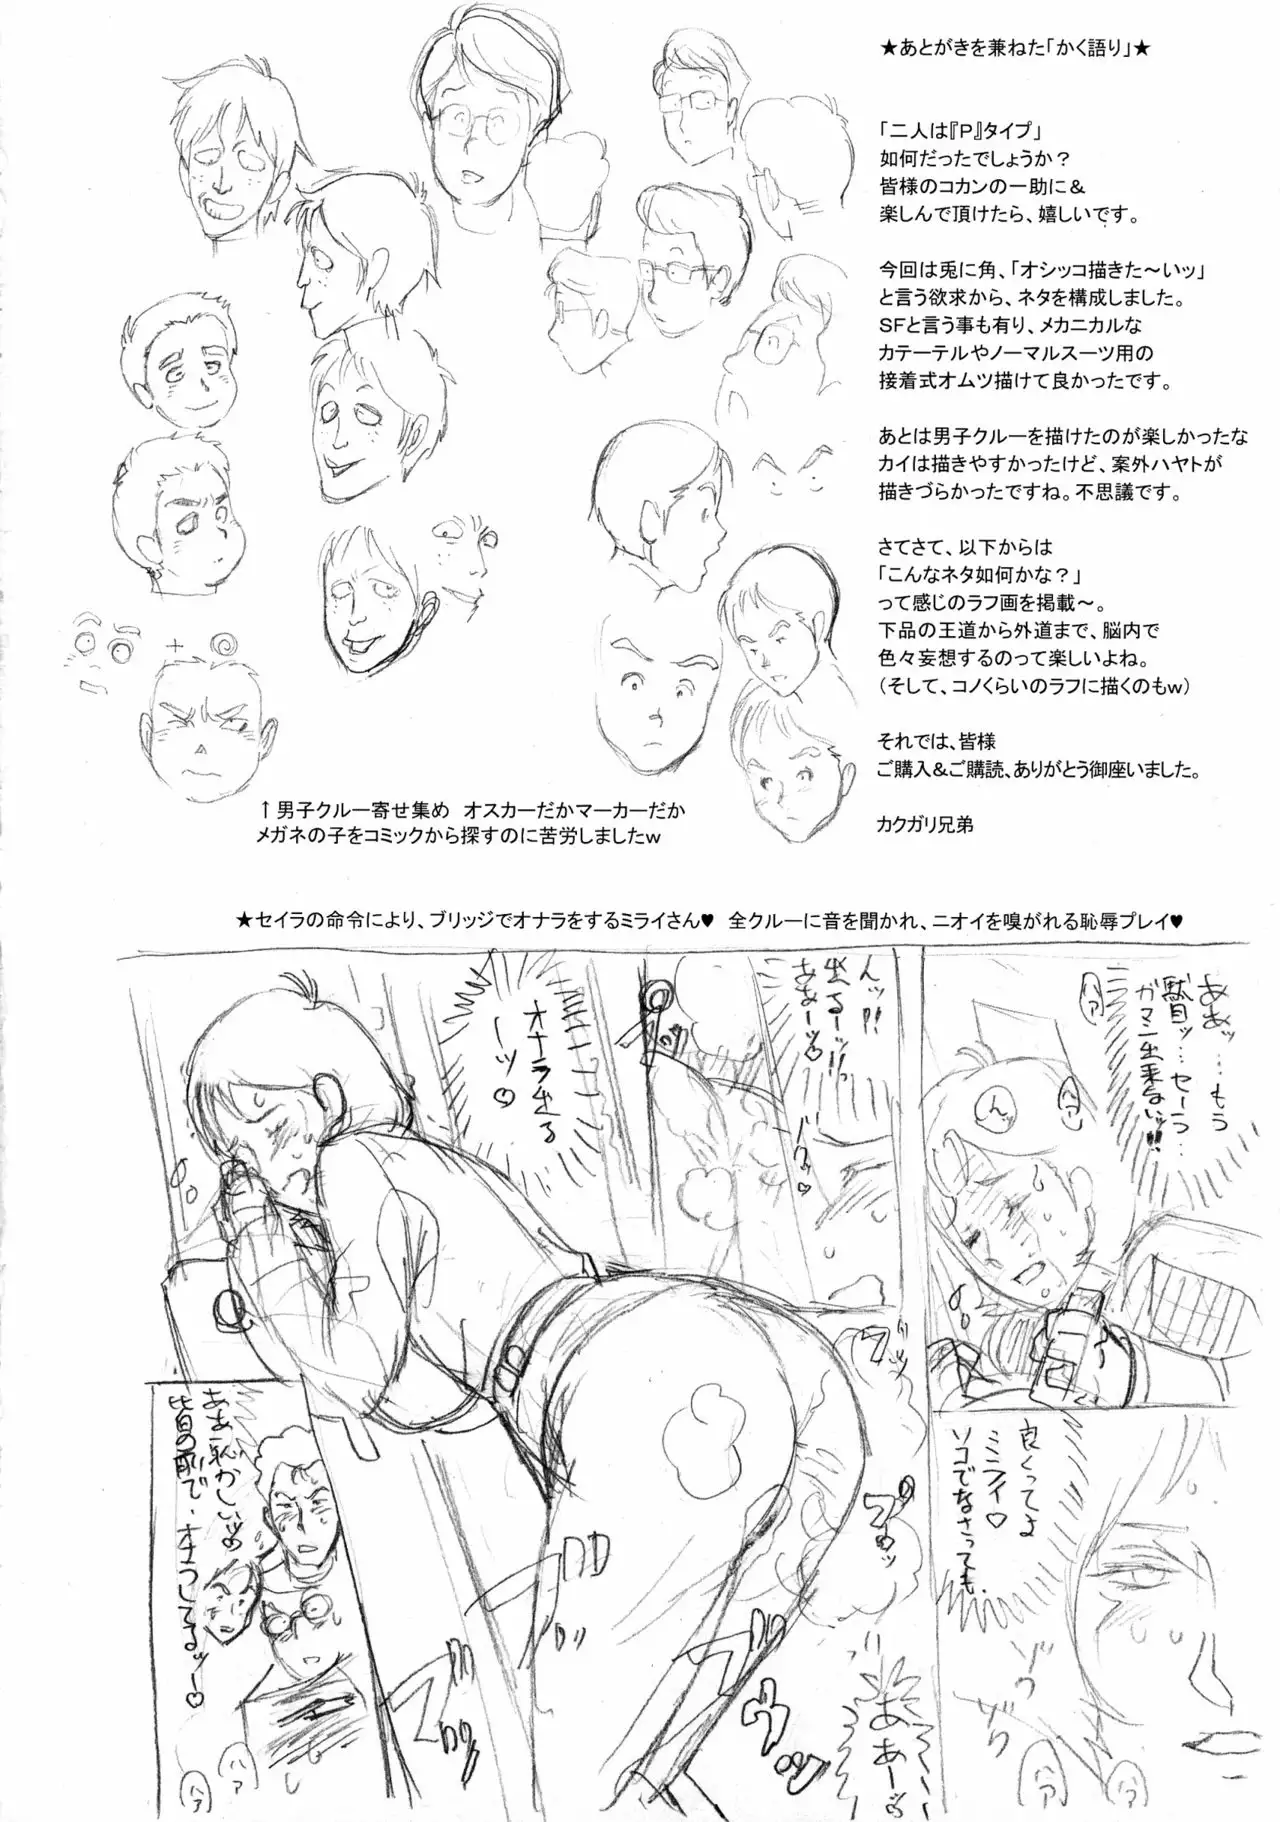 ★あとがきを兼ねた「かく語り」★
「二人は『P』タイプ」
如何だったでしょうか？
皆様のコカンの一助に＆
楽しんで頂けたら、嬉しいです。
今回は兎に角、「オシッコ描きた～いッ」
と言う欲求から、ネタを構成しました。
ＳＦと言う事も有り、メカニカルな
カテーテルやノーマルスーツ用の
接着式オムツ描けて良かったです。
あとは男子クルーを描けたのが楽しかったな
カイは描きやすかったけど、案外ハヤトが
描きづらかったですね。不思議です。
さてさて、以下からは
「こんなネタ如何かな？」
って感じのラフ画を掲載～。
下品の王道から外道まで、脳内で
色々妄想するのって楽しいよね。
（そして、コノくらいのラフに描くのもｗ）
それでは、皆様
ご購入＆ご購読、ありがとう御座いました。
カクガリ兄弟
↑男子クルー寄せ集め　オスカーだかマーカーだか
メガネの子をコミックから探すのに苦労しましたｗ
★セイラの命令により、ブリッジでオナラをするミライさん♥　全クルーに音を聞かれ、ニオイを嗅がれる恥辱プレイ♥
ああッ…もう
駄目ッ…セーラ…
ガマン出来ないッ!!
ハァ
んッ
ハァ
良くってよ
ミライ♡
ソコでなさっても
ゾク
ゾク
ハァ
ハァ
んッ!!
出るーッ!!
ああーッ♡
オナラ出る
ーッ♡
ああーッ
ああ恥かしいッ
皆の前で、オナラしてるッー♡
ハァ
ハァ